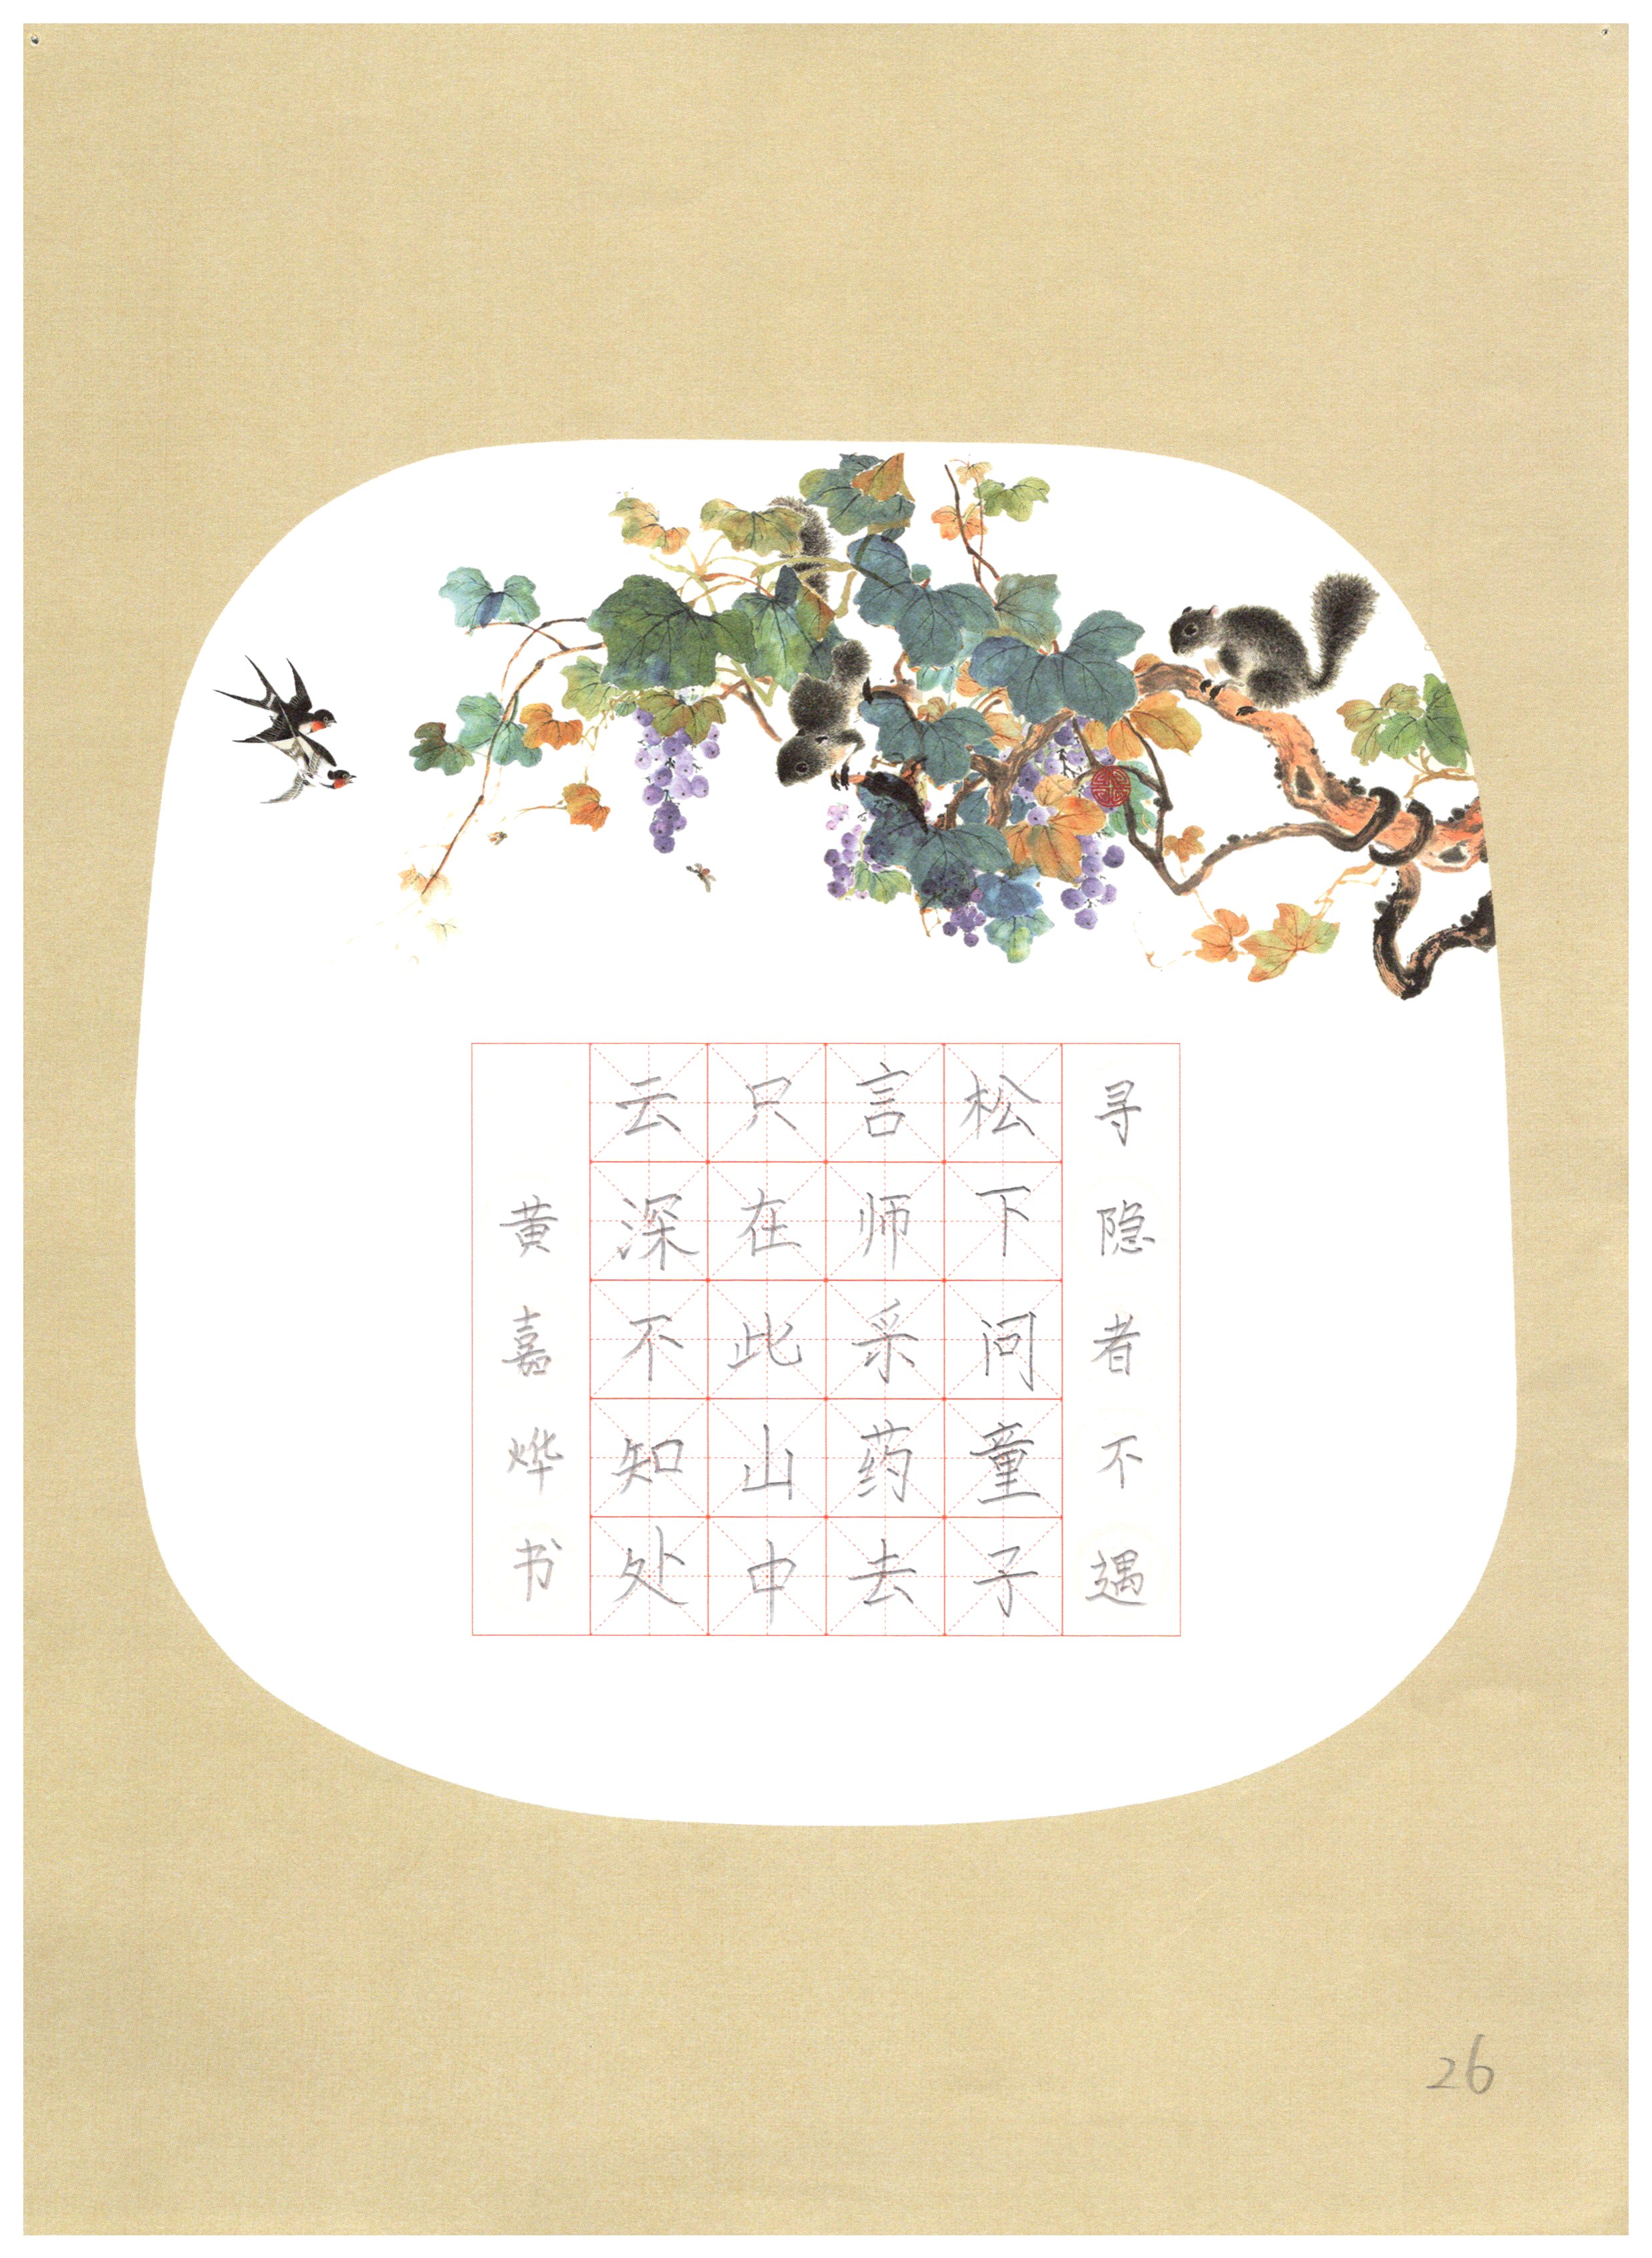 寻隐者不遇
松下问童子
言师采药去
只在此山中
云深不知处
黄嘉烨书
26